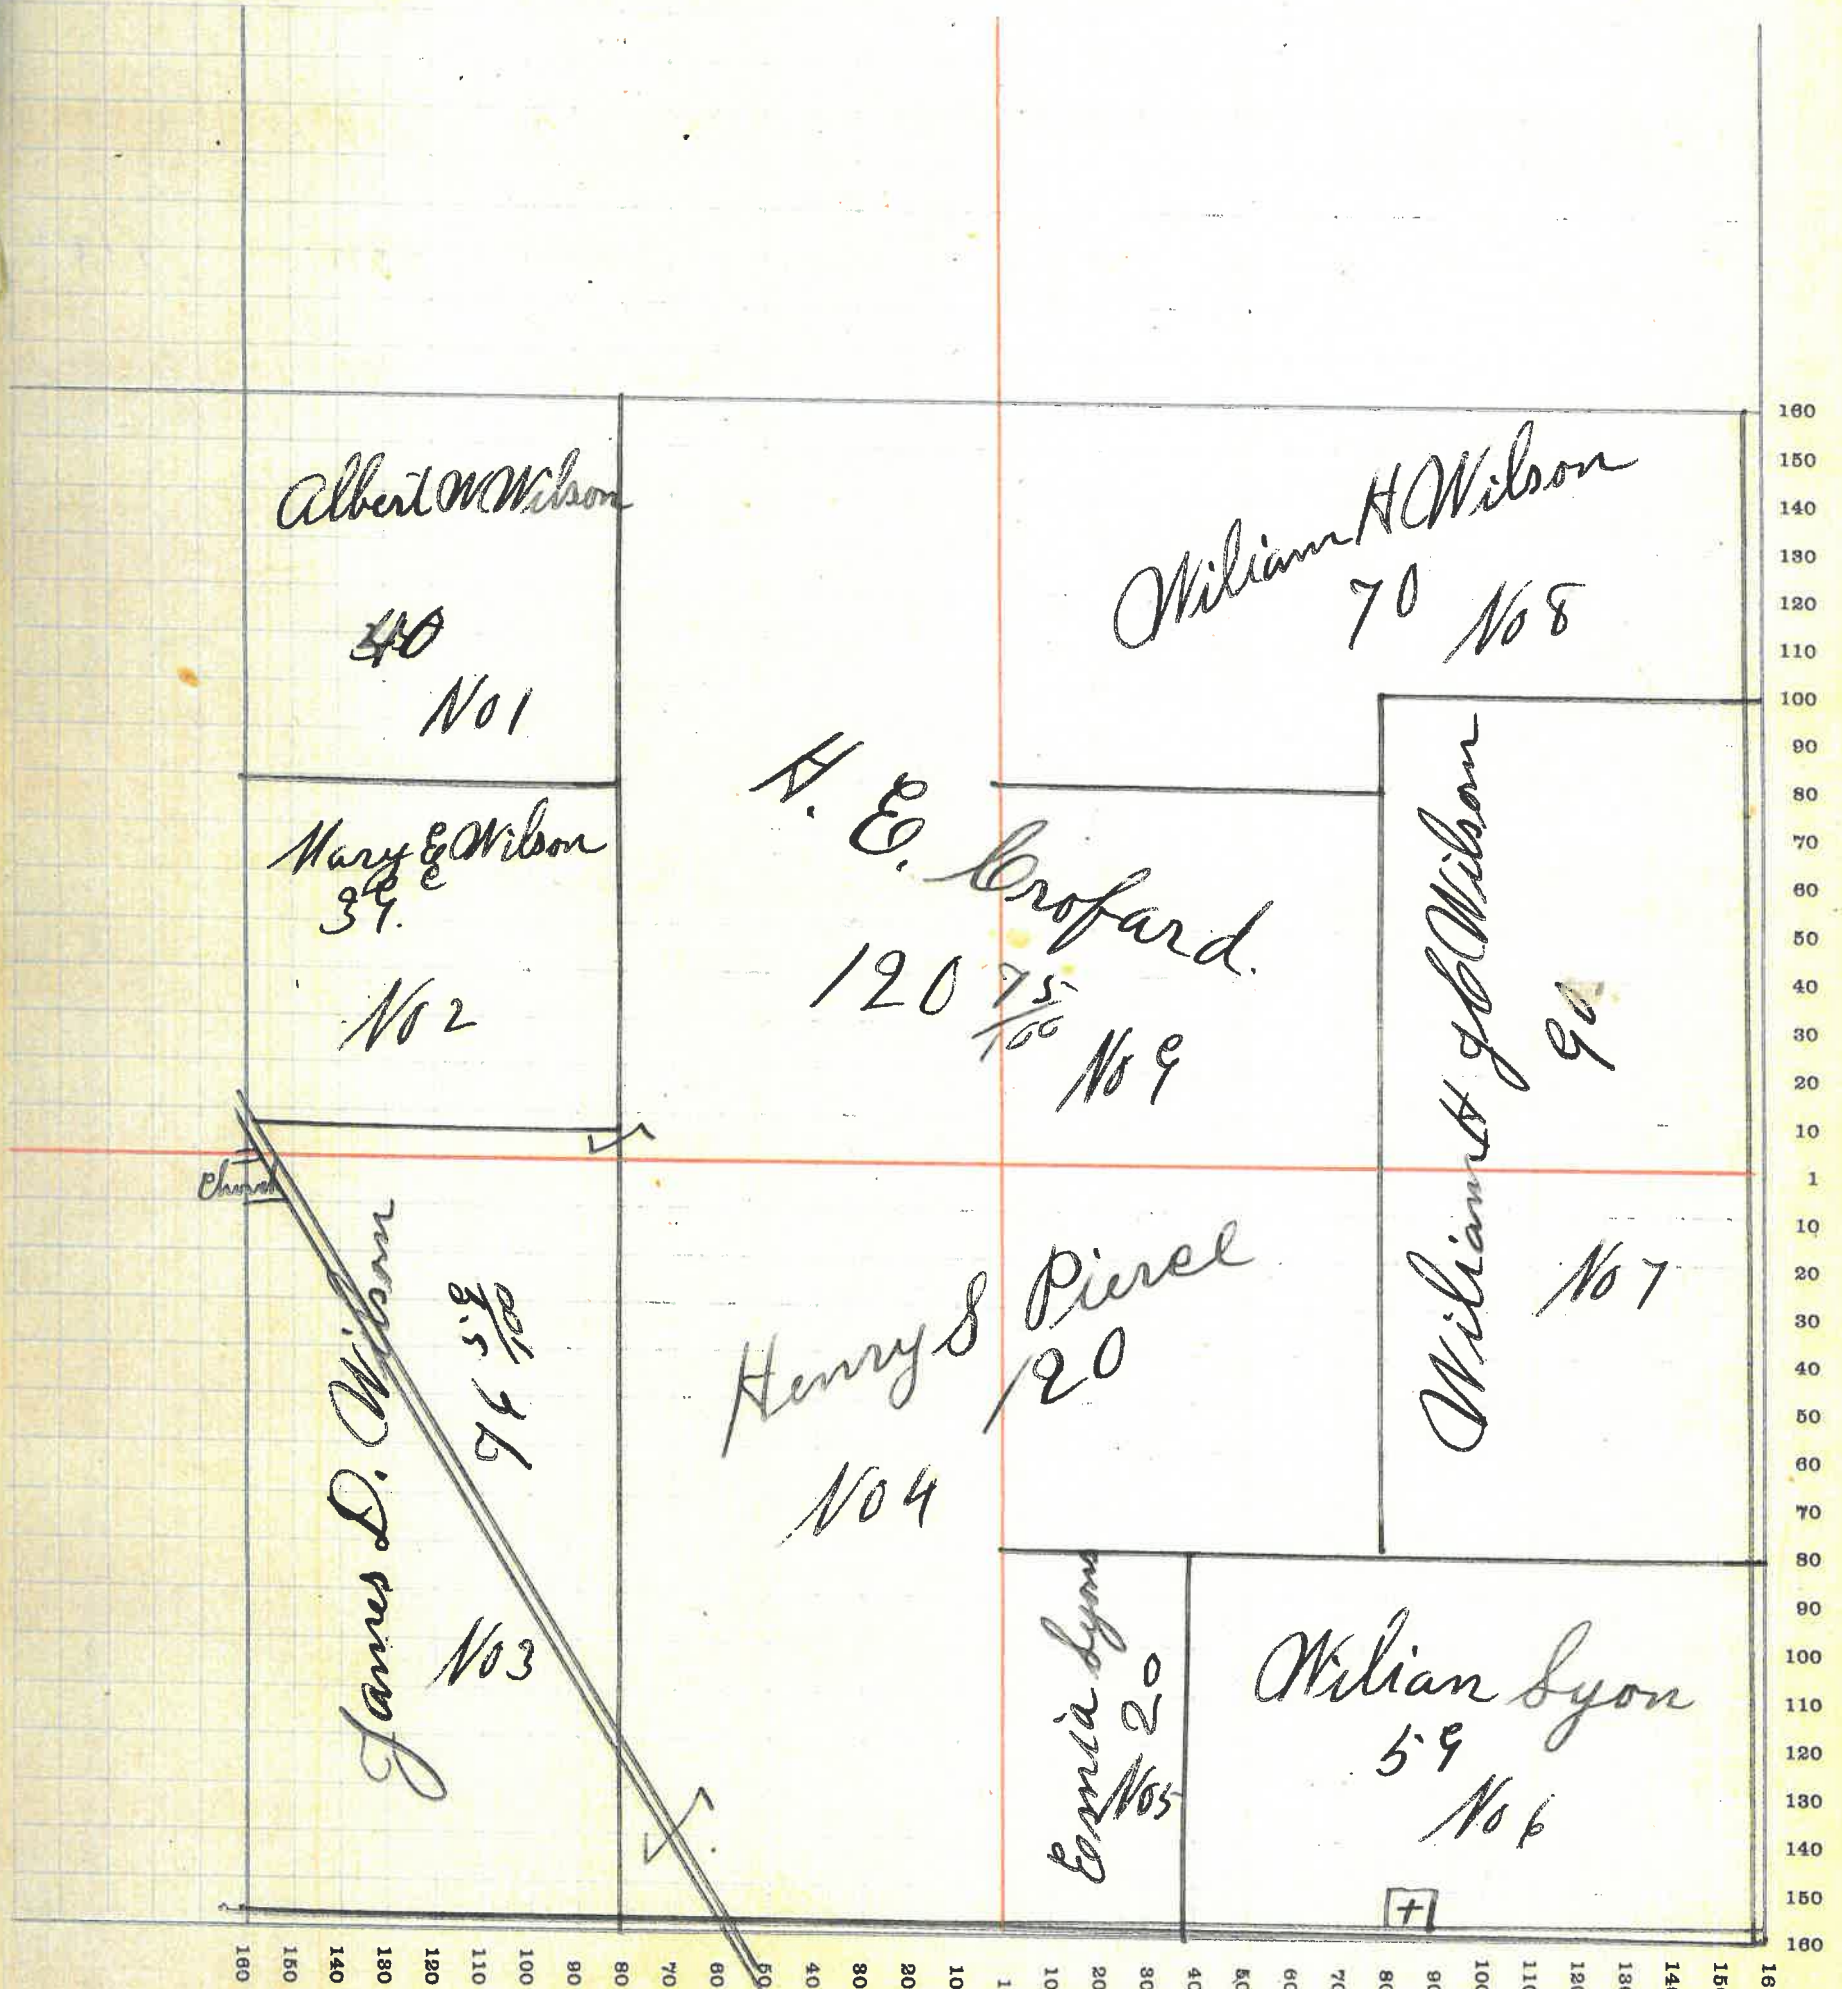 Albert W Wilson
40
No 1
Mary E Wilson
39.
No 2
Church
James D. Wilson
76 59/100
No 3
H. E. Crofard.
120 75/100
No 9
Wiliam H Wilson
70
No 8
Wiliam H Wilson
90
No 7
Henry S Pierce
120
No 4
20
No 5
Wilian Lyon
59
No 6
+
160
150
140
130
120
110
100
90
80
70
60
50
40
30
20
10
1
10
20
30
40
50
60
70
80
90
100
110
120
130
140
150
160
160 150 140 130 120 110 100 90 80 70 60 50 40 30 20 10 1 10 20 30 40 50 60 70 80 90 100 110 120 130 140 150 16